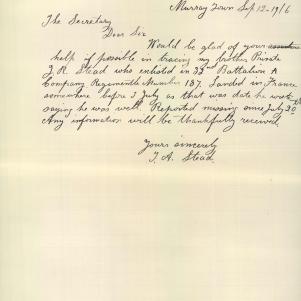 Murray Town Sep 12-1916
The Secretary
Dear Sir
Would be glad of your
help if possible in tracing my brother Private
J. R. Stead who enlisted in 32nd Battalion A
Company Regimental Number 187. Landed in France
somewhere before 3 July as that was date he wrote
saying he was well. Reported missing since July 20th
Any information will be thankfully received
Yours sincerely
T. A. Stead